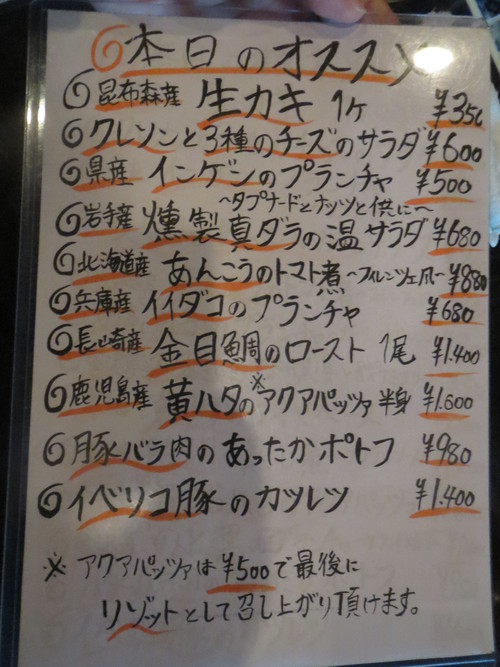 本日のオススメ
昆布森産 生カキ 1ケ ¥350
クレソンと3種のチーズのサラダ ¥600
県産 インゲンのプランチャ ¥500
〜タプナードとナッツと供に〜
岩手産 燻製真ダラの温サラダ ¥680
北海道産 あんこうのトマト煮〜フィレンツェ風〜 ¥880
兵庫産 イイダコのプランチャ ¥680
長崎産 金目鯛のロースト 1尾 ¥1.400
鹿児島産 黄ハタの※アクアパッツァ 半身 ¥1.600
豚バラ肉のあったかポトフ ¥980
イベリコ豚のカツレツ ¥1.400
※ アクアパッツァは¥500で最後に
リゾットとして召し上がり頂けます。